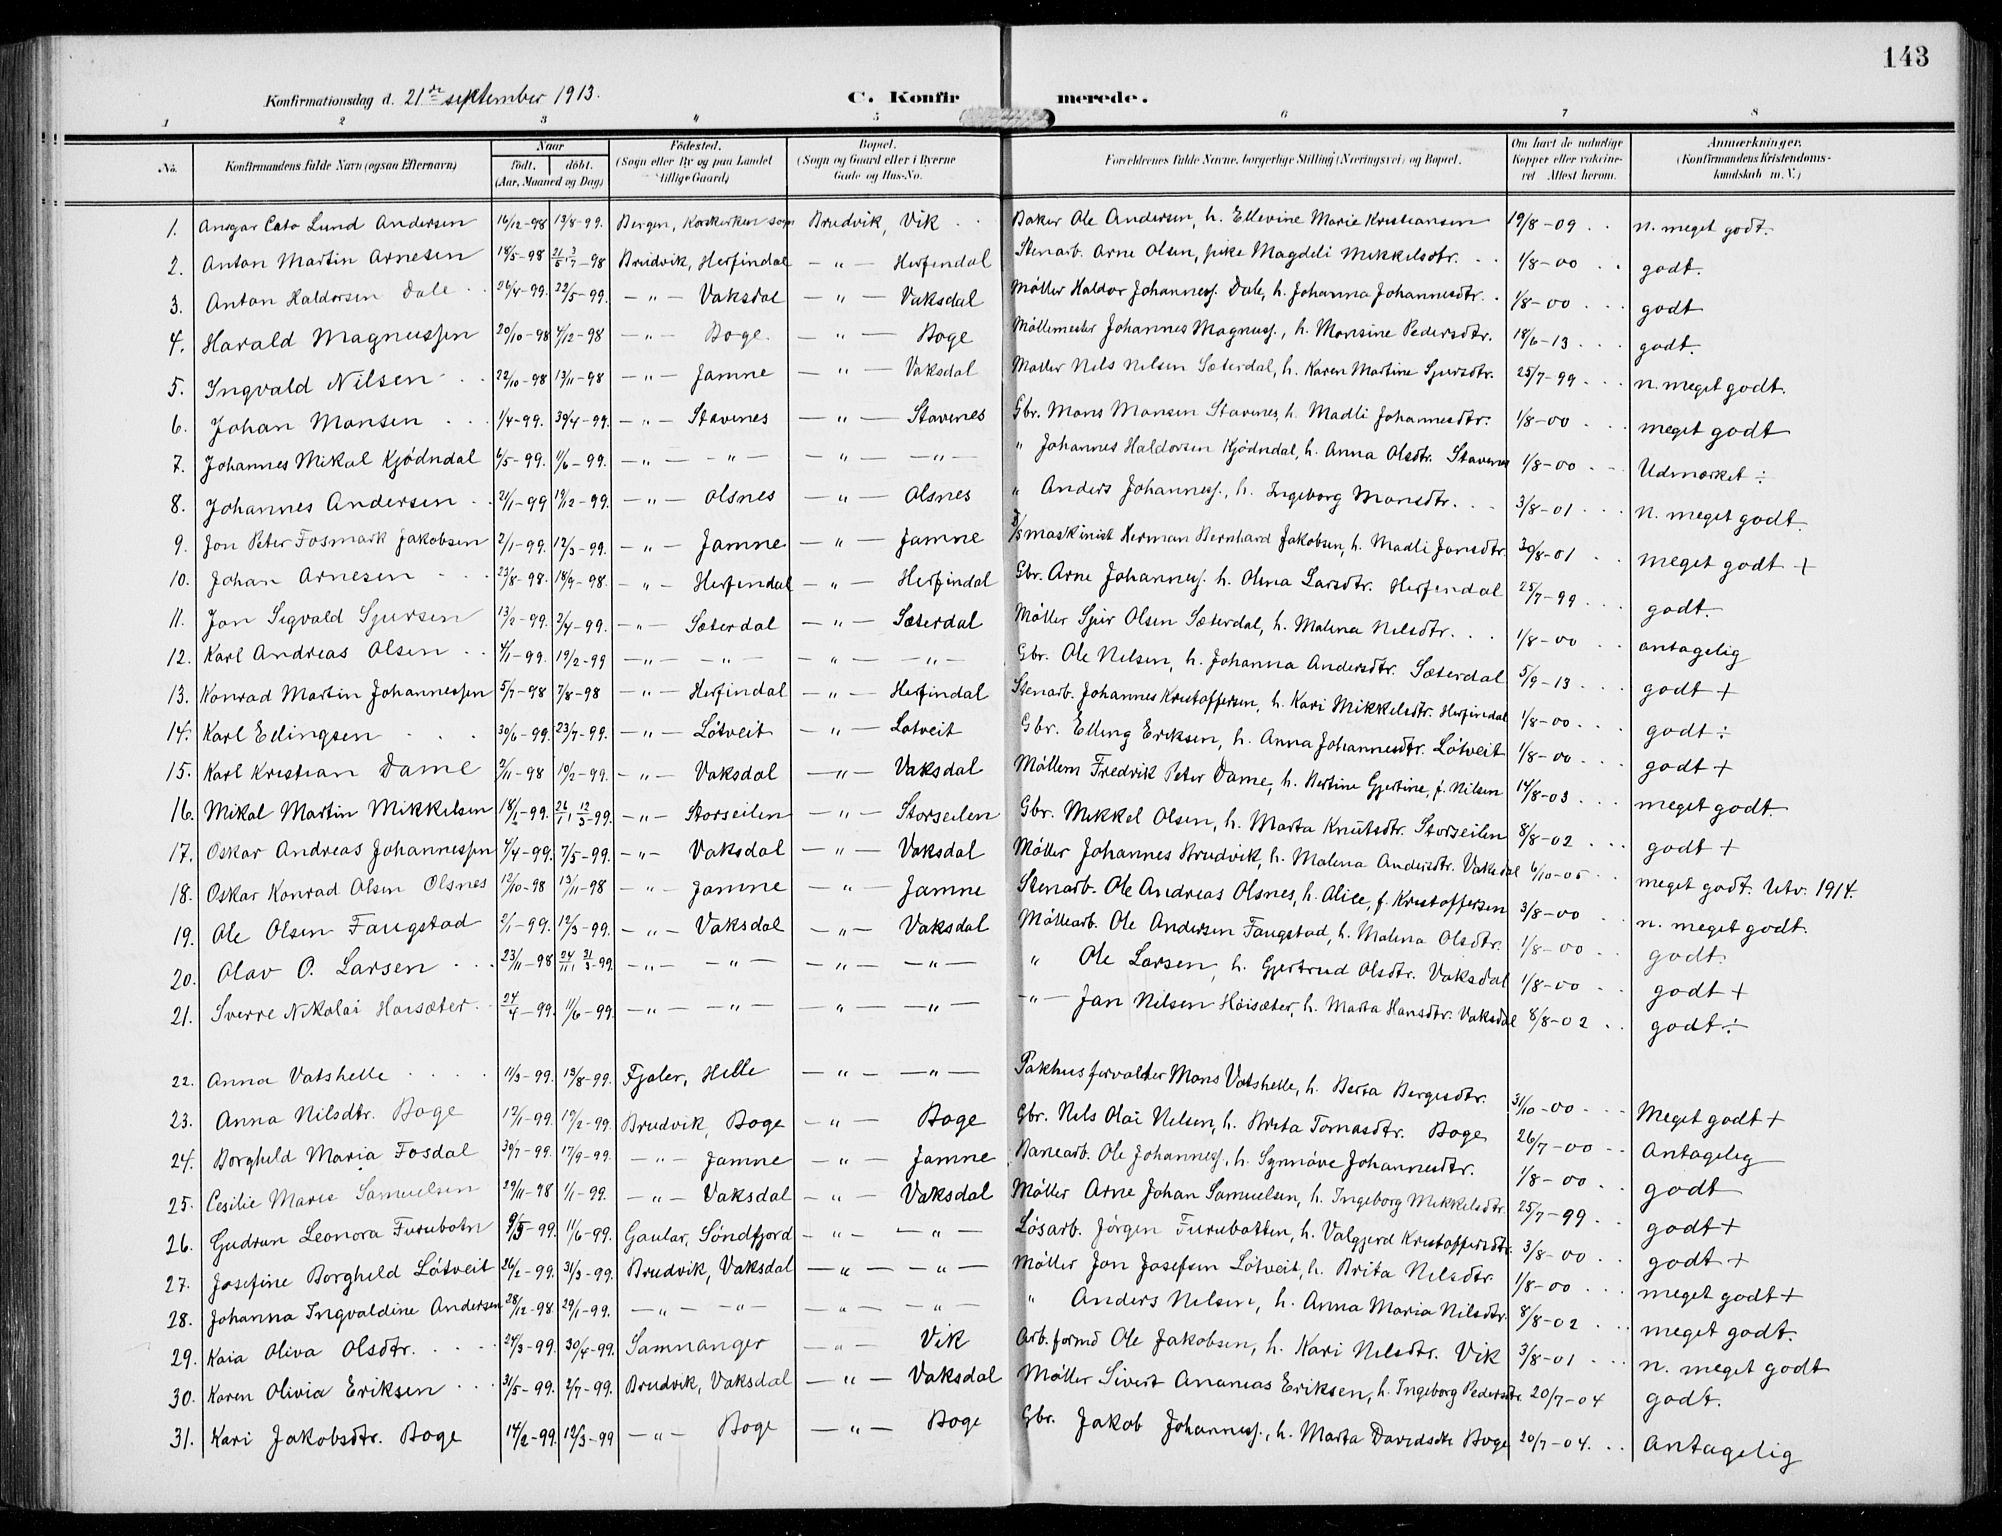 143
Konfirmationsdag d. 21de september 1913. C. Konfirmerede.
1 2 3 " 5 6 7 8
No. Konfirmandens fulde Navn (ogsaa Efternavn) Naar født. døbt. (Aar, Maaned og Dag) Fødested. (Sogn eller By og paa Landet tillige Gaard) Bopæl. (Sogn og Gaard eller i Byerne Gade og Hus-No. Forældrenes fulde Navne, borgerlige Stilling (Næringsvei) og Bopæl. Om havt de naturlige Kopper eller vaccineret. Attest herom. Anmærkninger. (Konfirmandens Kristendomskundskab m. V.)
1. Ansgar Cato Lund Andersen 16/12-98 13/8-99. Bergen, Korskirken sogn Brudvik, Vik Baker Ole Andersen, h. Ellevine Marie Kristiansen 19/8-09 n. meget godt.
2. Anton Martin Arnesen 18/5-98 21/5, 3/7-98 Brudvik, Herfindal -"- Herfindal Stenarb. Arne Olsen, pike Magdeli Mikkelsdtr. 1/8-00 godt.
3. Anton Haldorsen Dale 26/4-99. 22/5-99. -"- Vaksdal -"- Vaksdal Møller Haldor Johanness. Dale, h. Johanna Johannesdtr. 1/8-00 godt
4. Harald Magnussen 20/10-98 4/12-98 -"- Boge -"- Boge Møllemester Johannes Magnuss., h. Monsine Pedersdtr. 18/6-13 godt.
5. Ingvald Nilsen 22/10-98 13/11-98 -"- Jamne -"- Vaksdal Møller Nils Nilsen Sæterdal, h. Karen Martine Sjursdtr. 25/7-99 n. meget godt.
6. Johan Monsen 1/4-99. 30/4-99. -"- Stavenes -"- Stavenes Gbr. Mons Monsen Stavenes, h. Madli Johannesdtr. 1/8-00 meget godt
7. Johannes Mikal Kjødndal 6/5-99. 11/6-99. -"- -"- -"- -"- " Johannes Haldorsen Kjødndal, h. Anna Olsdtr. Stavenes 1/8-00 Udmerket ÷
8. Johannes Andersen 21/1-99 19/2-99. -"- Olsnes -"- Olsnes " Anders Johanness., h. Ingeborg Monsdtr. 3/8-01 n. meget godt.
9. Jon Peter Fosmark Jakobsen 2/1-99. 12/3-99. -"- Jamne -"- Jamne maskinist Herman Bernhard Jakobsen, h. Madli Jonsdtr. 30/8-01 meget godt +
10. Johan Arnesen 23/8-98. 18/9-98. -"- Herfindal -"- Herfindal Gbr. Arne Johanness. h. Olina Larsdtr. Herfindal 25/7-99 godt.
11. Jon Sigvald Sjursen 13/2-99. 2/4-99. -"- Sæterdal -"- Sæterdal Møller Sjur Olsen Sæterdal, h. Malena Nilsdtr. 1/8-00 antagelig
12. Karl Andreas Olsen 4/1-99. 19/2-99 -"- -"- -"- -"- Gbr. Ole Nilsen, h. Johanna Andersdtr. Sæterdal 5/9-13 godt +
13. Konrad Martin Johannessen 5/7-98 7/8-98 -"- Herfindal -"- Herfindal Stenarb. Johannes Kristoffersen, h. Kari Mikkelsdtr. Herfindal 1/8-00 godt ÷
14. Karl Ellingsen 30/6-99. 23/7-99. -"- Løtveit -"- Løtveit Gbr. Elling Eriksen, h. Anna Johannesdtr. Løtveit 1/8-00 godt +
15. Karl Kristian Dame 2/11-98 19/2-99. -"- Vaksdal -"- Vaksdal Møllem Fredrik Peter Dame, h. Bertine Gjertine, f. Nilsen 14/8-03 meget godt.
16. Mikal Martin Mikkelsen 18/1-99. 26/1, 12/3-99. -"- Storseilen -"- Storseilen Gbr. Mikkel Olsen, h. Marta Knutsdtr. Storseilen 8/8-02 godt +
17. Oskar Andreas Johannessen 4/4-99. 7/5-99. -"- Vaksdal -"- Vaksdal Møller Johannes Brudvik, h. Malena Andersdtr. Vaksdal 6/10-05 meget godt. Utv. 1914.
18. Oskar Konrad Olsen Olsnes 12/10-98 13/11-98 -"- Jamne -"- Jamne Stenarb. Ole Andreas Olsnes, h. Alice, f. Kristoffersen 3/8-00 n. meget godt.
19. Ole Olsen Faugstad 2/1-99. 12/3-99. -"- Vaksdal -"- Vaksdal Møllearb. Ole Andersen Faugstad, h. Malena Olsdtr. 1/8-00 godt.
20. Olav O. Larsen 23/11-98 24/11, 21/3-99. -"- -"- -"- -"- " Ole Larsen, h. Gjertrud Olsdtr. Vaksdal 1/8-00 godt +
21. Sverre Nikolai Høisæter 24/4-99. 11/6-99. -"- -"- -"- -"- -"- Jan Nilsen Høisæter, h. Marta Hansdtr. Vaksdal 8/8-02 godt ÷
22. Anna Vatshelle 11/3-99. 13/8-99. Fjaler, Helle -"- -"- Pakhusforvalter Mons Vatshelle, h. Berta Bergesdtr. 31/10-00 Meget godt +
23. Anna Nilsdtr. Boge 12/1-99. 19/2-99. Brudvik, Boge -"- Boge Gbr. Nils Olai Nilsen, h. Brita Tomasdtr. Boge 26/7-00 Antagelig
24. Borghild Maria Fosdal 30/7-99. 17/9-99. -"- Jamne -"- Jamne Banearb. Ole Johanness., h. Synnøve Johannesdtr. 1/8-00 godt
25. Cesilie Marie Samuelsen 29/11-98 1/1-99. -"- Vaksdal -"- Vaksdal Møller Arne Johan Samuelsen, h. Ingeborg Mikkelsdtr. 25/7-99 godt +
26. Gudrun Leonora Furubotn 9/5-99. 11/6-99. Gaular, Søndfjord -"- -"- Løsarb. Jørgen Furubotten, h. Valgjerd Kristoffersdtr. 3/8-00 godt +
27. Josefine Borghild Løtveit 26/2-99. 31/3-99. Brudvik, Vaksdal -"- -"- Møller Jon Josefsen Løtveit, h. Brita Nilsdtr. 1/8-00 meget godt +
28. Johanna Ingvaldine Andersen 28/12-98 29/1-99. -"- -"- -"- -"- " Anders Nilsen, h. Anna Maria Nilsdtr. 8/8-02 meget godt.
29. Kaia Oliva Olsdtr. 24/3-99. 30/4-99. Samnanger -"- Vik Arb.formd Ole Jakobsen, h. Kari Nilsdtr. Vik 3/8-01 n. meget godt
30. Karen Olivia Eriksen 31/5-99. 2/7-99. Brudvik, Vaksdal -"- Vaksdal Møller Sivert Ananias Eriksen, h. Ingeborg Pedersdtr. 20/7-04 godt.
31. Kari Jakobsdtr. Boge 14/2-99. 12/3-99 -"- Boge -"- Boge Gbr. Jakob Johanness., h. Marta Davidsdtr Boge 20/7-04. Antagelig